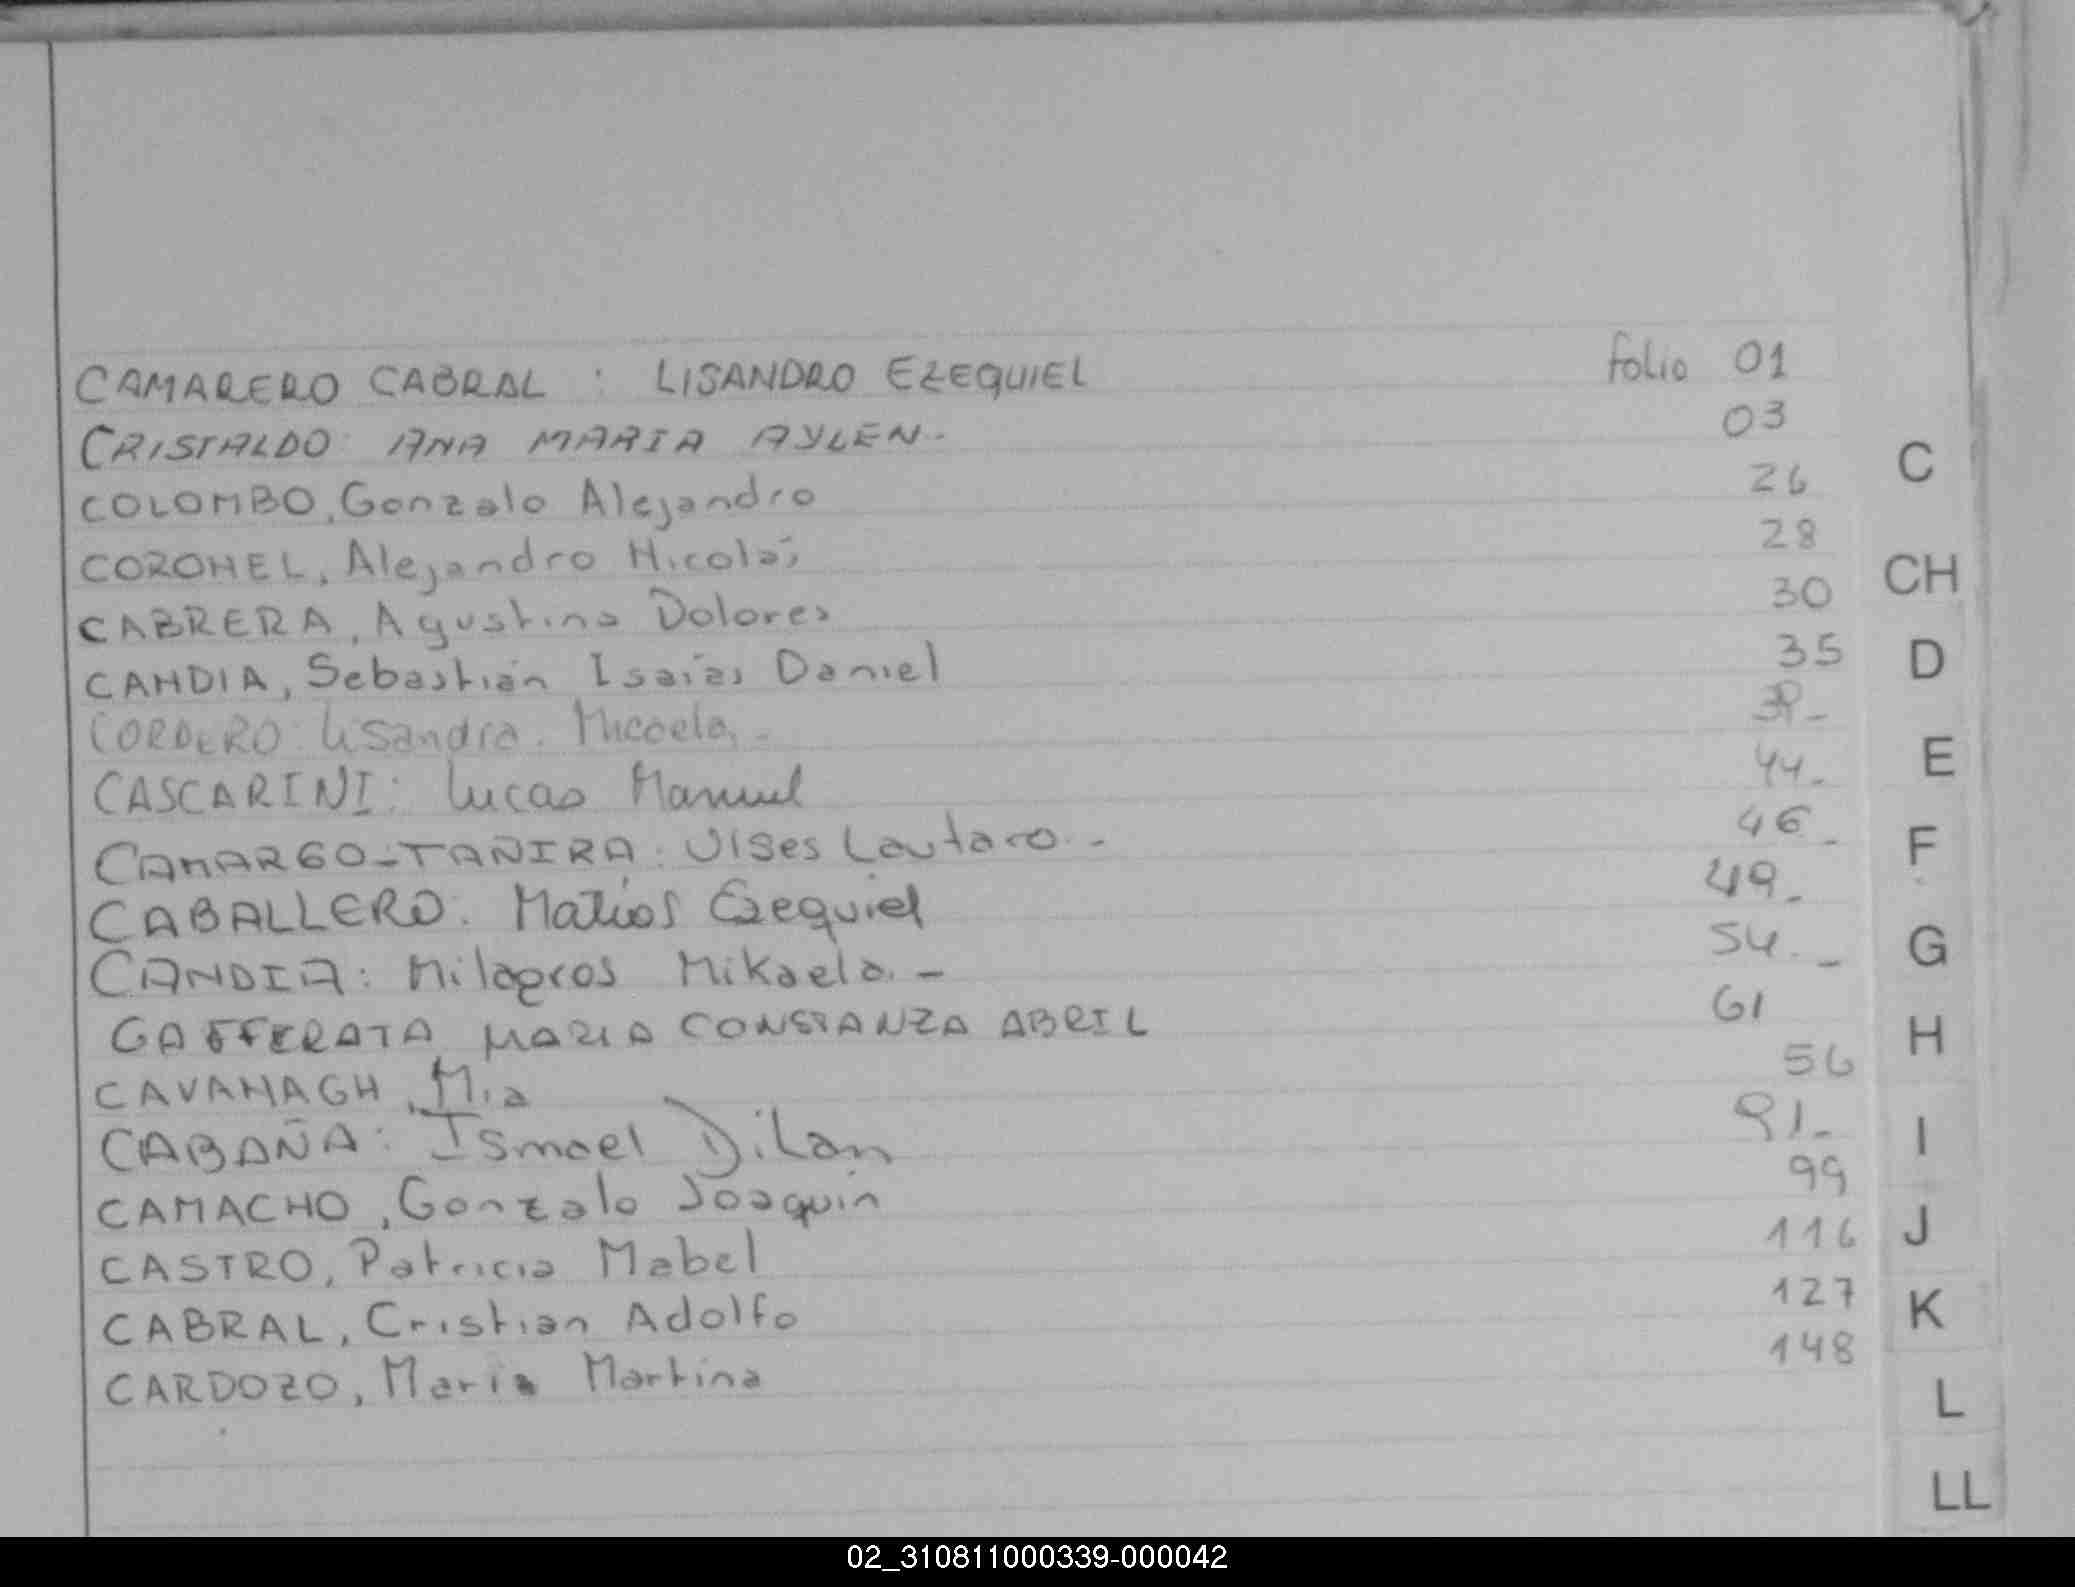 CAMARERO CABRAL : LISANDRO EZEQUIEL folio 01
CRISTALDO: ANA MARIA AYLEN.- 03
COLOMBO, Gonzalo Alejandro 26
CORONEL, Alejandro Nicolás 28
CABRERA, Agustina Dolores 30
CANDIA, Sebastián Isaías Daniel 35
CORDERO: Lisandra. Micaela.-
CASCARINI: Lucas Manuel 44-
CAMARGO-TAÑIRA: Ulises Lautaro.- 46-
CABALLERO: Matías Ezequiel 49-
CANDIA: Milagros Mikaela.- 54.-
GAFFERATA MARIA CONSTANZA ABRIL 61
CAVANAGH, Mia 56
CABAÑA: Ismael Dilan 91-
CAMACHO, Gonzalo Joaquín 99
CASTRO, Patricia Mabel 116
CABRAL, Cristian Adolfo 127
CARDOZO, Maria Martina 148
C
CH
D
E
F
G
H
I
J
K
L
LL
02_310811000339-000042